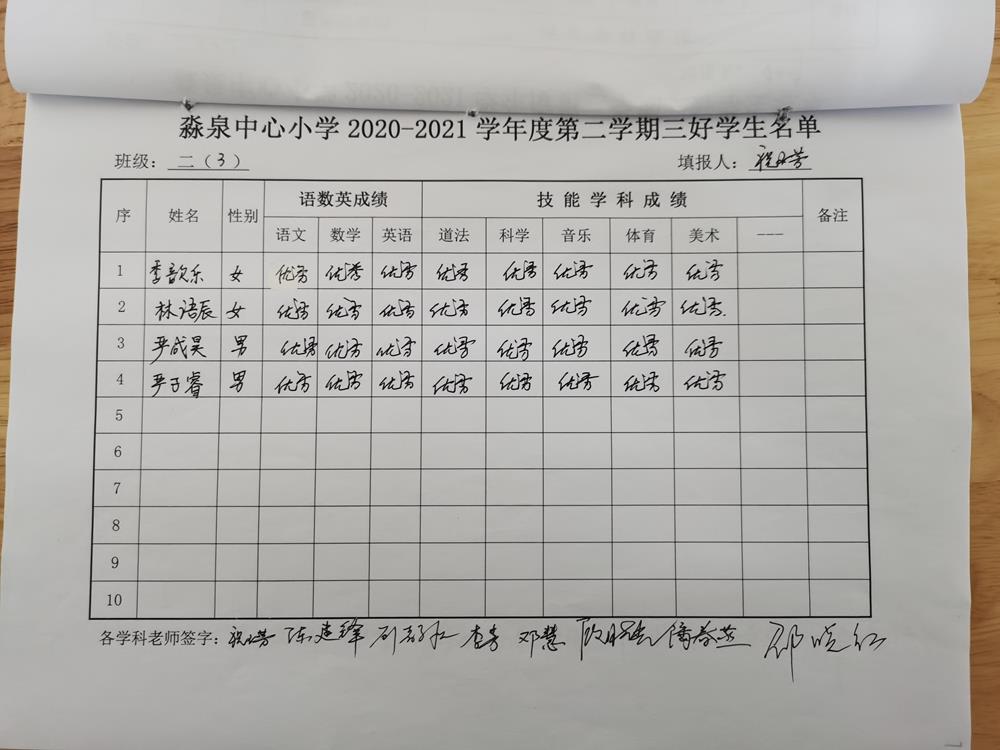 淼泉中心小学2020-2021学年度第二学期三好学生名单
班级：二（3） 填报人：
序 姓名 性别 语数英成绩 技能学科成绩 备注
语文 数学 英语 道法 科学 音乐 体育 美术 ---
1 季歆乐 女 优秀 优秀 优秀 优秀 优秀 优秀 优秀 优秀
2 林语辰 女 优秀 优秀 优秀 优秀 优秀 优秀 优秀 优秀
3 严成昊 男 优秀 优秀 优秀 优秀 优秀 优秀 优秀 优秀
4 严子睿 男 优秀 优秀 优秀 优秀 优秀 优秀 优秀 优秀
5
6
7
8
9
10
各学科老师签字： 陈建锋 邓慧 邵晓红